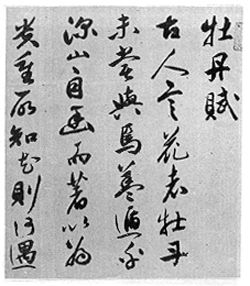 牡丹賦
古人言花者牡丹
未嘗與焉蓋遁於
深山自幽而著以為
貴重所知花則何遇